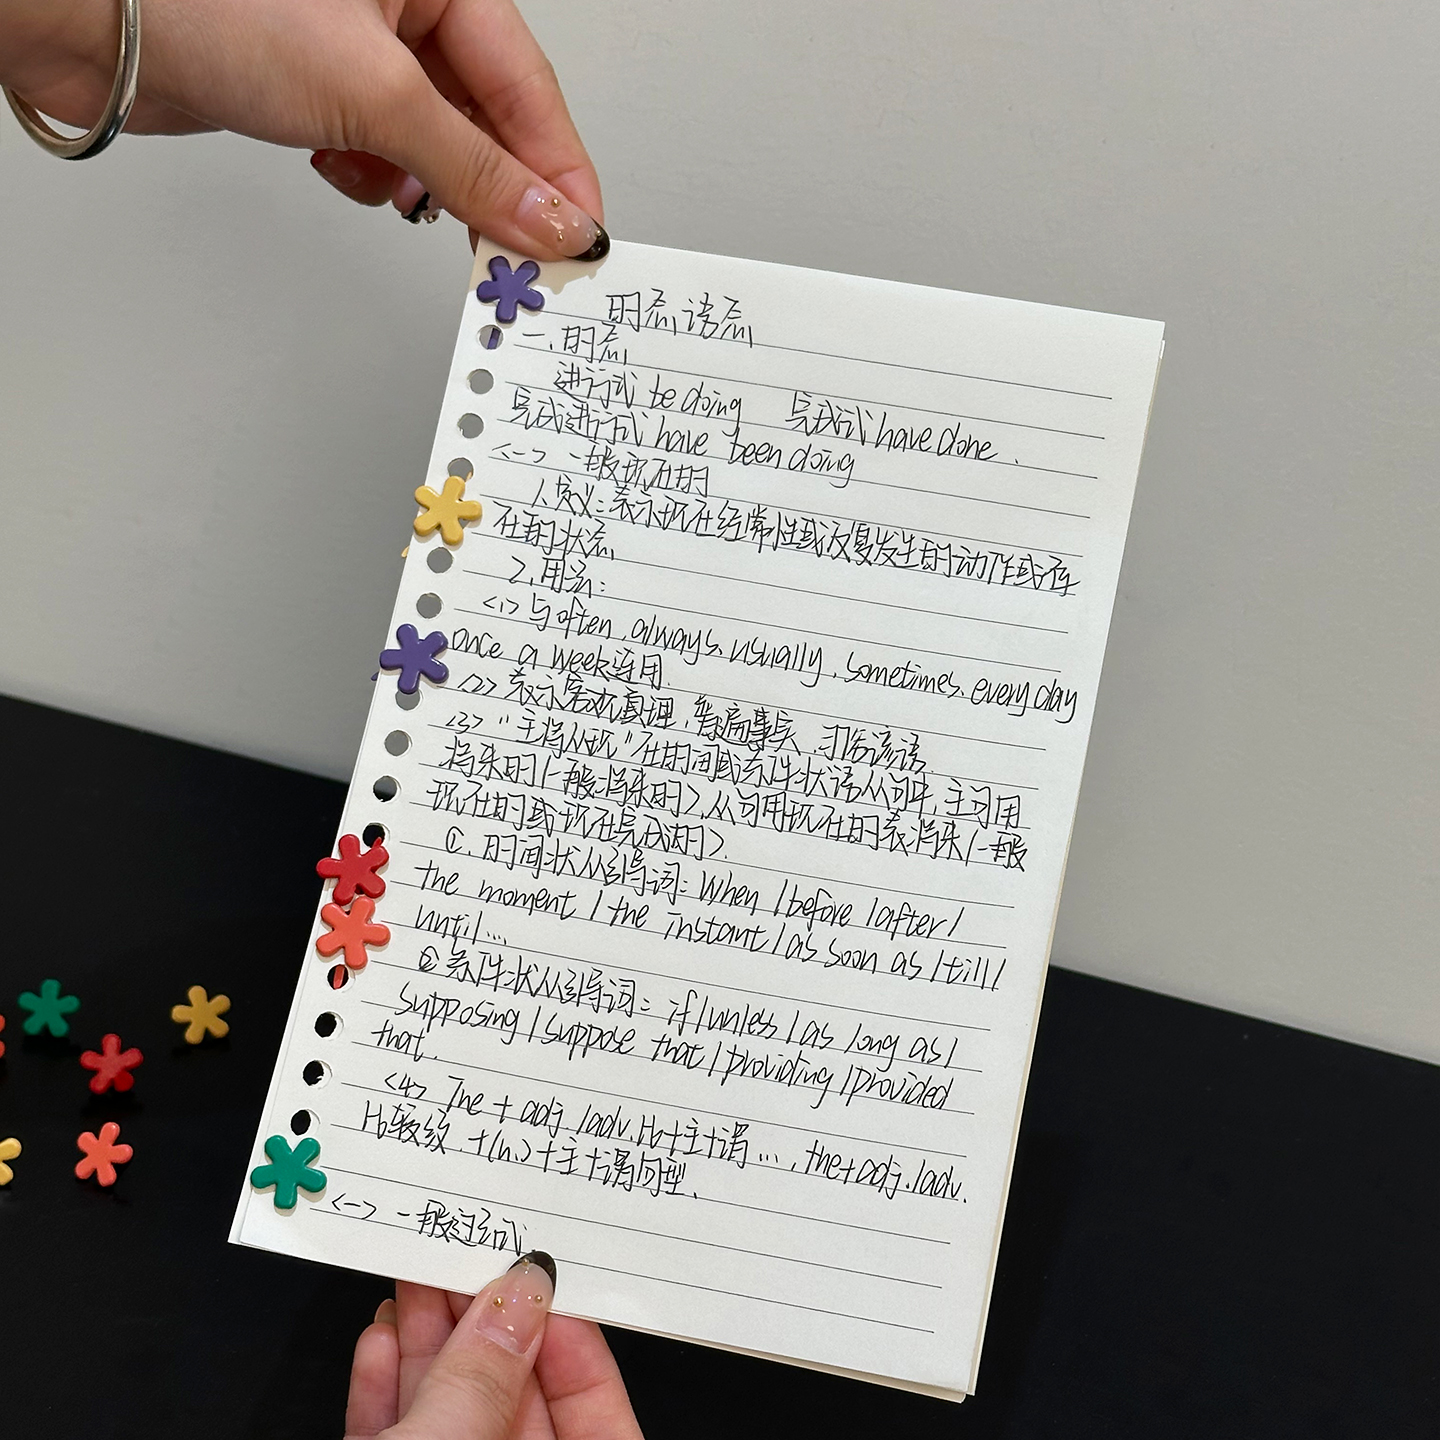 时态语态
一.时态
进行式 be doing 完成式 have done.
完成进行式 have been doing
<一> 一般现在时
1.定义:表示现在经常性或反复发生的动作或存
在的状态
2.用法:
<1> 与often,always,usually,sometimes,every day
once a week连用.
<2> 表示客观真理,普遍事实,习俗谚语.
<3> “主将从现”在时间或条件状语从句中,主句用
将来时(一般将来时),从句用现在时表将来(一般
现在时或现在完成时).
①.时间状从引导词:When/before/after/
the moment/the instant/as soon as/till/
until...
②条件状从引导词:if/unless/as long as/
supposing/suppose that/providing/provided
that.
<4> The+adj./adv.比+主+谓...,the+adj./adv.
比较级.+(n.)+主+谓句型.
<一> 一般过去式